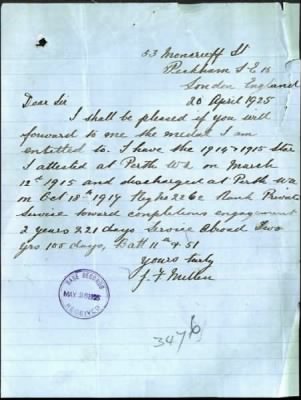 53 Moncrieff St
Peckham S.E 15
London England
20 April 1925
Dear Sir
I shall be pleased if you will
forward to me the medal I am
entitled to. I have the 1914-1915 Star
I attested at Perth WA on March
12th 1915 and discharged at Perth WA
on Oct 18th 1917 Reg No 2260 Rank Private
Service toward completions engagement
2 years 221 days Service Abroad Two
Yrs 100 days, Batt 11th & 51
Yours truly
J. F
BASE RECORDS
MAY 1925
RECEIVED
3476